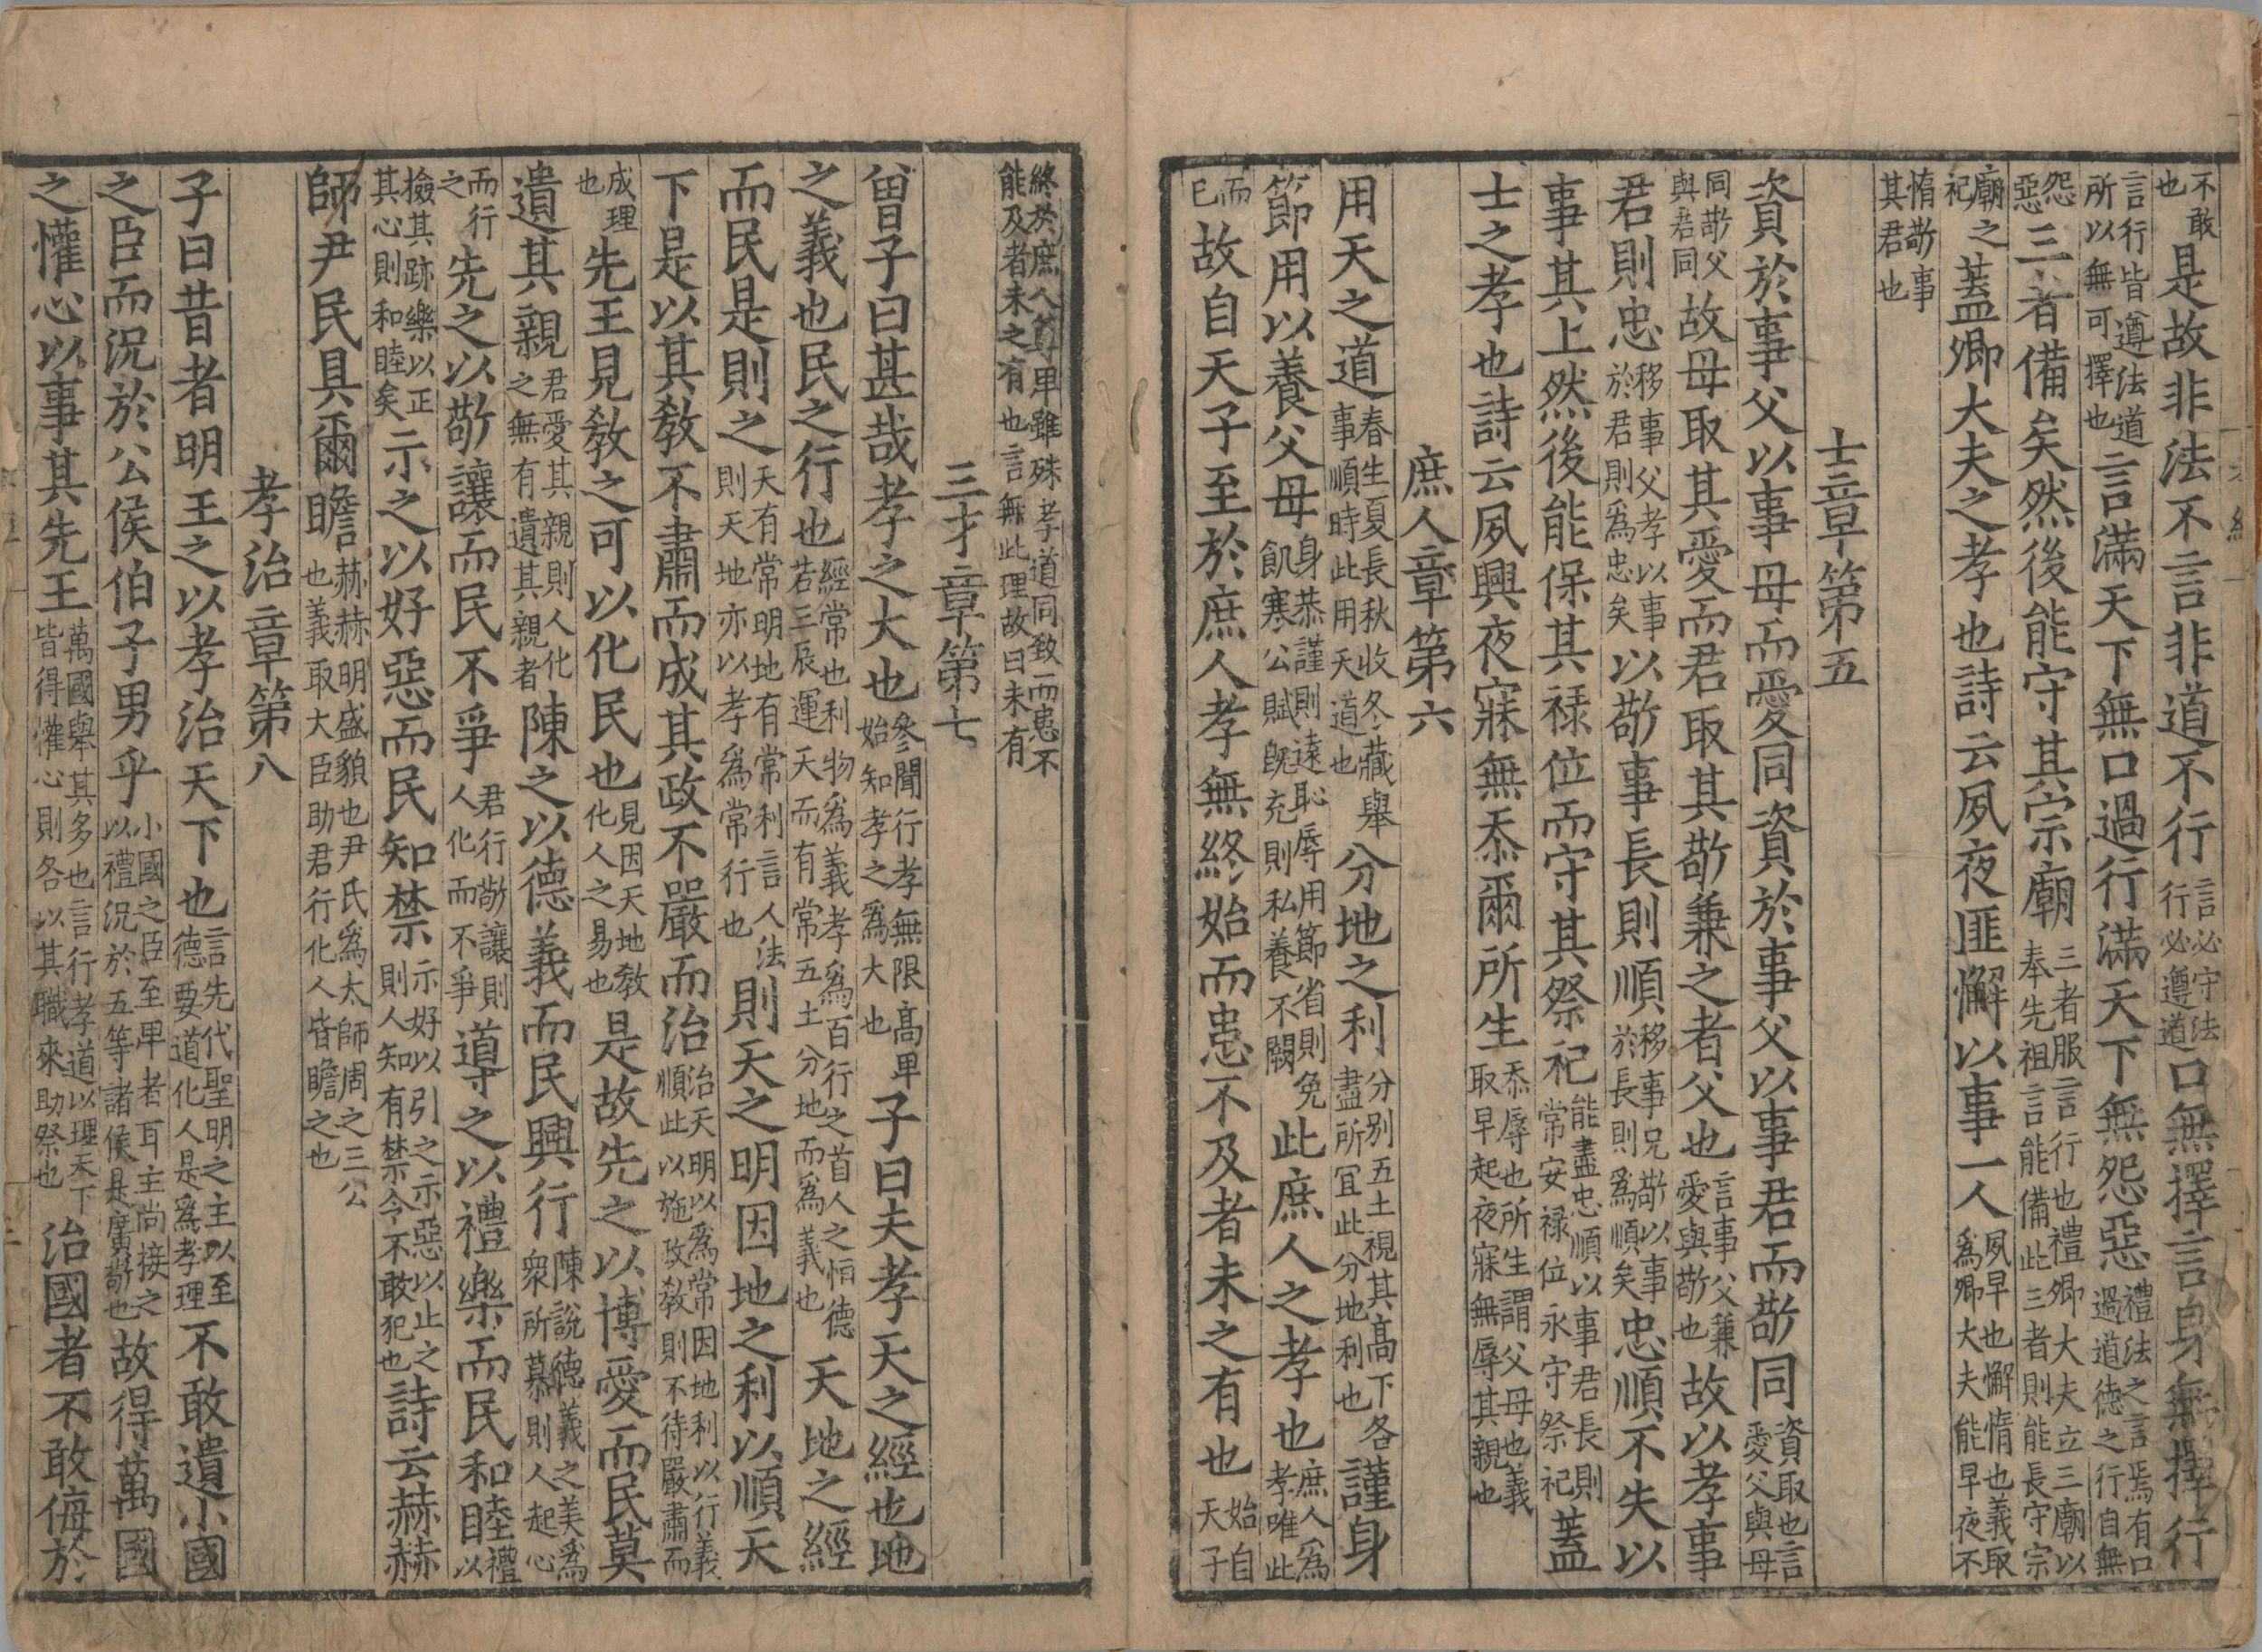 不敢也是故非法不言非道不行言必守法行必遵道口無擇言身無擇行
言行皆遵法道所以無可擇也言滿天下無口過行滿天下無怨惡禮法之言焉有口過道德之行自無
怨惡三者備矣然後能守其宗廟三者服言行也禮卿大夫立三廟以奉先祖言能備此三者則能長守宗
廟之祀蓋卿大夫之孝也詩云夙夜匪懈以事一人夙早也懈惰也義取爲卿大夫能早夜不
惰敬事其君也
士章第五
資於事父以事母而愛同資於事父以事君而敬同資取也言愛父與母
同敬父與君同故母取其愛而君取其敬兼之者父也言事父兼愛與敬也故以孝事
君則忠移事父孝以事於君則爲忠矣以敬事長則順移事兄敬以事於長則爲順矣忠順不失以
事其上然後能保其祿位而守其祭祀能盡忠順以事君長則常安祿位永守祭祀蓋
士之孝也詩云夙興夜寐無忝爾所生忝辱也所生謂父母也義取早起夜寐無辱其親也
庶人章第六
用天之道春生夏長秋收冬藏舉事順時此用天道也分地之利分別五土視其高下各盡所宜此分地利也謹身
節用以養父母身恭謹則遠恥辱用節省則免飢寒公賦旣充則私養不闕此庶人之孝也庶人爲孝唯此
而已故自天子至於庶人孝無終始而患不及者未之有也始自天子
終於庶人尊卑雖殊孝道同致而患不能及者未之有也言無此理故曰未有
三才章第七
曾子曰甚哉孝之大也參聞行孝無限高卑始知孝之爲大也子曰夫孝天之經也地
之義也民之行也經常也利物爲義孝爲百行之首人之恒德若三辰運天而有常五土分地而爲義也天地之經
而民是則之天有常明地有常利言人法則天地亦以孝爲常行也則天之明因地之利以順天
下是以其教不肅而成其政不嚴而治治天明以爲常因地利以行義順此以施政教則不待嚴肅而
成理也先王見教之可以化民也見因天地教化人之易也是故先之以博愛而民莫
遺其親君愛其親則人化之無有遺其親者陳之以德義而民興行陳說德義之美爲衆所慕則人起心
而行之先之以敬讓而民不爭君行敬讓則人化而不爭導之以禮樂而民和睦禮以
撿其跡樂以正其心則和睦矣示之以好惡而民知禁示好以引之示惡以止之則人知有禁令不敢犯也詩云赫赫
師尹民具爾瞻赫赫明盛貌也尹氏爲太師周之三公也義取大臣助君行化人皆瞻之也
孝治章第八
子曰昔者明王之以孝治天下也言先代聖明之主以至德要道化人是爲孝理不敢遺小國
之臣而況於公侯伯子男乎小國之臣至卑者耳主尚接之以禮況於五等諸侯是廣敬也故得萬國
之懽心以事其先王萬國舉其多也言行孝道以理天下皆得懽心則各以其職來助祭也治國者不敢侮於